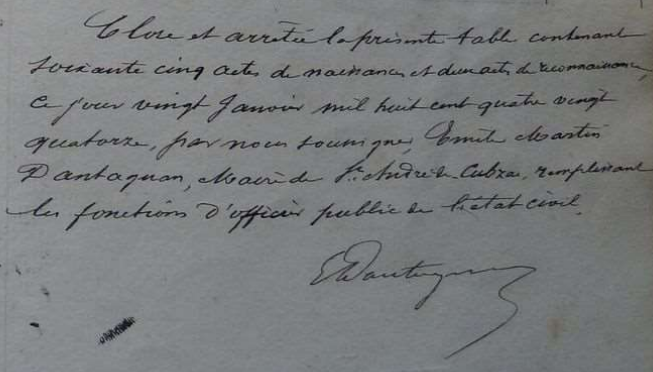 Close et arrêtée la présente table contenant
soixante cinq actes de naissances et deux actes de reconnaissance,
ce jour vingt Janvier mil huit cent quatre vingt
quatorze, par nous soussigné, Emile Martin
Dantagnan, Maire de St André de Cubzac, remplissant
les fonctions d'officier public de l'état civil.
EDantagnan